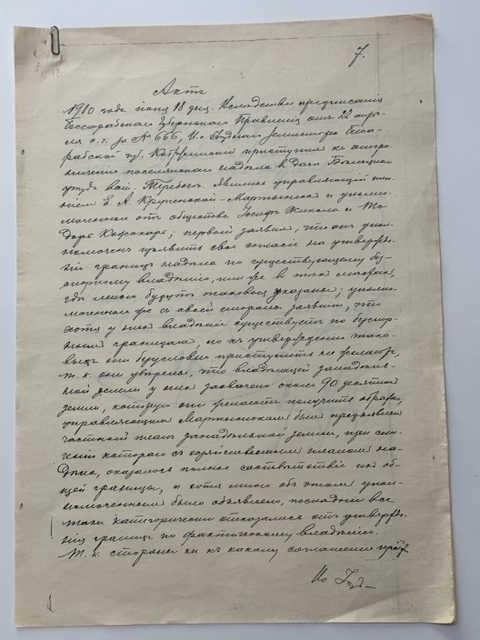 7.
Актъ
1910 года іюня 18 дня. Вслѣдствіе предписанія
Бессарабскаго Губернскаго Правленія отъ 22 апрѣ-
ля с. г. за № 666, И. о. Уѣзднаго Землемѣра Бесса-
рабской губ. приступилъ къ ограни-
ченію поселянскаго надѣла въ дачѣ Бѣлецкаго
уѣзда вол. Теребна. Явились управляющій имѣ-
ніемъ Е. А. Крупенской - Мартыновъ и уполно-
моченные отъ общества Іосифъ и Ѳе-
доръ ; первый заявилъ, что онъ упол-
номоченъ изъявить свое согласіе на утвержде-
ніе границъ надѣла по существующему без-
спорному владѣнію, или же въ тѣхъ мѣстахъ,
гдѣ таковыя указаны; уполно-
моченные же съ своей стороны заявили, что
хотя у нихъ владѣніе существуетъ по безспор-
нымъ границамъ, но къ утвержденію тако-
выхъ они безусловно приступить не желаютъ,
т. к. они увѣрены, что владѣльцемъ занадѣль-
ной земли у нихъ захвачено около 90 десятинъ
земли, которую они желаютъ получить обратно;
управляющимъ Мартыновымъ былъ предъявленъ
частный планъ занадѣльной земли, при сли-
ченіи котораго съ планомъ на-
дѣла, оказалось полное соотвѣтствіе ихъ об-
щей границы, и хотя многое объ этомъ упол-
номоченнымъ было объявлено, послѣдніе все
таки категорически отказались отъ утвержде-
нія границъ по фактическому владѣнію.
Т. к. стороны ни къ какому соглашенію
И. о.